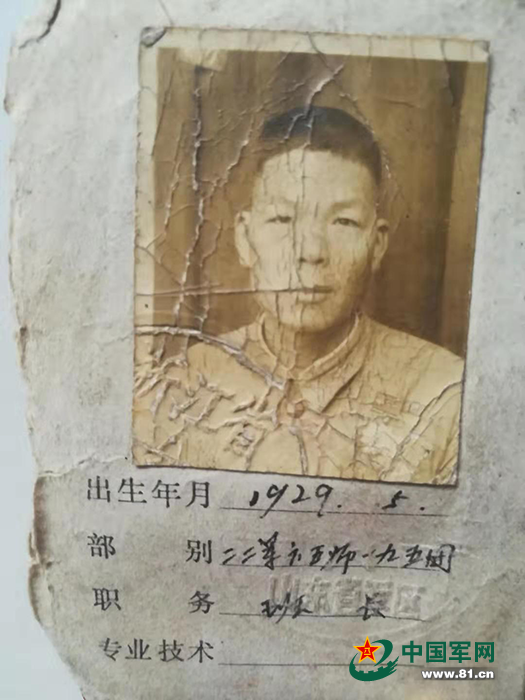 出生年月 1929. 5.
部别 二二军六五师一九五团
职务 班长
山东省军区
专业技术
中国军网
www.81.cn